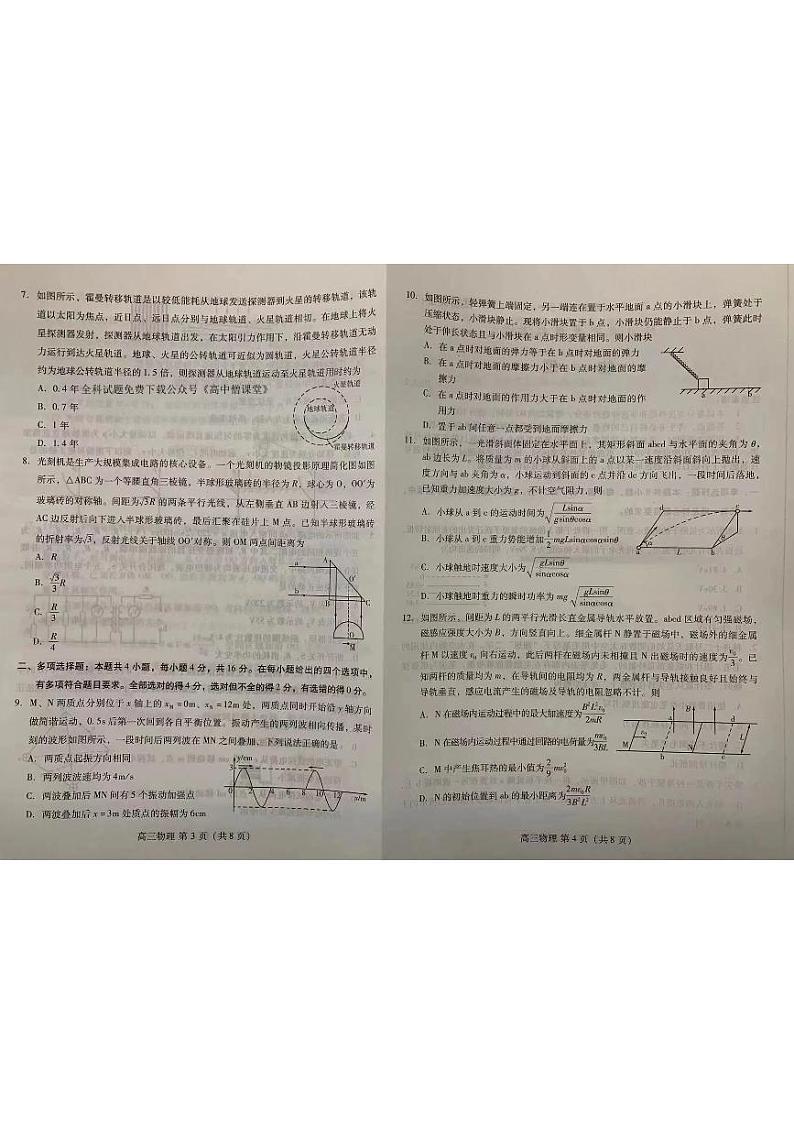 7. 如图所示，霍曼转移轨道是以较低能耗从地球发送探测器到火星的转移轨道，该轨
道以太阳为焦点，近日点、远日点分别与地球轨道、火星轨道相切。在地球上将火
星探测器发射，探测器从地球轨道出发，在太阳引力作用下，沿霍曼转移轨道无动
力运行到达火星轨道。地球、火星的公转轨道可近似为圆轨道，火星公转轨道半径
约为地球公转轨道半径的 1.5 倍，则探测器从地球轨道运动至火星轨道用时约为
A. 0.4 年 全科试题免费下载公众号《高中僧课堂》
B. 0.7 年
C. 1 年
D. 1.4 年
火星轨道
地球轨道
霍曼转移轨道
8. 光刻机是生产大规模集成电路的核心设备。一个光刻机的物镜投影原理简化图如图
所示，△ABC 为一个等腰直角三棱镜，半球形玻璃砖的半径为 R，球心为 O，OO′为
玻璃砖的对称轴。间距为√3R 的两条平行光线，从左侧垂直 AB 边射入三棱镜，经
AC 边反射后向下进入半球形玻璃砖，最后汇聚在硅片上 M 点。已知半球形玻璃砖
的折射率为√3，反射光线关于轴线 OO′对称。则 OM 两点间距离为
A. R
B. √3/3 R
C. R/3
D. R/4
a
b
A
B
C
O′
O
M
二、多项选择题：本题共 4 小题，每小题 4 分，共 16 分。在每小题给出的四个选项中，
有多项符合题目要求。全部选对的得 4 分，选对但不全的得 2 分，有选错的得 0 分。
9. M、N 两质点分别位于 x 轴上的 xM = 0m、xN = 12m 处，两质点同时开始沿 y 轴方向
做简谐运动，0.5s 后第一次回到各自平衡位置。振动产生的两列波相向传播，某时
刻的波形如图所示，一段时间后两列波在 MN 之间叠加，下列说法正确的是
A. 两质点起振方向相同
B. 两列波波速均为 4m/s
C. 两波叠加后 MN 间有 5 个振动加强点
D. 两波叠加后 x = 3m 处质点的振幅为 6cm
y/cm
3
0 2 4 6 8 10 12 x/m
高三物理 第 3 页（共 8 页）
10. 如图所示，轻弹簧上端固定，另一端连在置于水平地面 a 点的小滑块上，弹簧处于
压缩状态，小滑块静止。现将小滑块置于 b 点，小滑块仍能静止于 b 点，弹簧此时
处于伸长状态且与小滑块在 a 点时形变量相同。则小滑块
A. 在 a 点时对地面的弹力等于在 b 点时对地面的弹力
B. 在 a 点时对地面的摩擦力小于在 b 点时对地面的摩
擦力
C. 在 a 点时对地面的作用力大于在 b 点时对地面的作
用力
D. 置于 ab 间任意一点都受到地面摩擦力
a b
11. 如图所示，一光滑斜面体固定在水平面上，其矩形斜面 abcd 与水平面的夹角为 θ，
ab 边长为 L。将质量为 m 的小球从斜面上的 a 点以某一速度沿斜面斜向上抛出，速
度方向与 ab 夹角为 α，小球运动到斜面的 c 点并沿 dc 方向飞出，一段时间后落地，
已知重力加速度大小为 g，不计空气阻力，则
A. 小球从 a 到 c 的运动时间为 √(Lsinα/gsinθcosα)
B. 小球从 a 到 c 重力势能增加 1/2 mgLsinαcosαsinθ
C. 小球触地时速度大小为 √(gLsinθ/sinαcosα)
D. 小球触地时重力的瞬时功率为 mg √(gLsinθ/sinαcosα)
d
c
a
L
b
12. 如图所示，间距为 L 的两平行光滑长直金属导轨水平放置。abcd 区域有匀强磁场，
磁感应强度大小为 B，方向竖直向上。细金属杆 N 静置于磁场中，磁场外的细金属
杆 M 以速度 v0 向右运动，此后两杆在磁场内未相撞且 N 出磁场时的速度为 v0/3。已
知两杆的质量均为 m，在导轨间的电阻均为 R，两金属杆与导轨接触良好且始终与
导轨垂直，感应电流产生的磁场及导轨的电阻忽略不计。则
A. N 在磁场内运动过程中的最大加速度为 B²L²v0/2mR
B. N 在磁场内运动过程中通过回路的电荷量为 mv0/3BL
C. M 中产生焦耳热的最小值为 2/9 mv0²
D. N 的初始位置到 ab 的最小距离为 2mv0R/3B²L²
a
B
d
v0
L
M
b
N
c
高三物理 第 4 页（共 8 页）